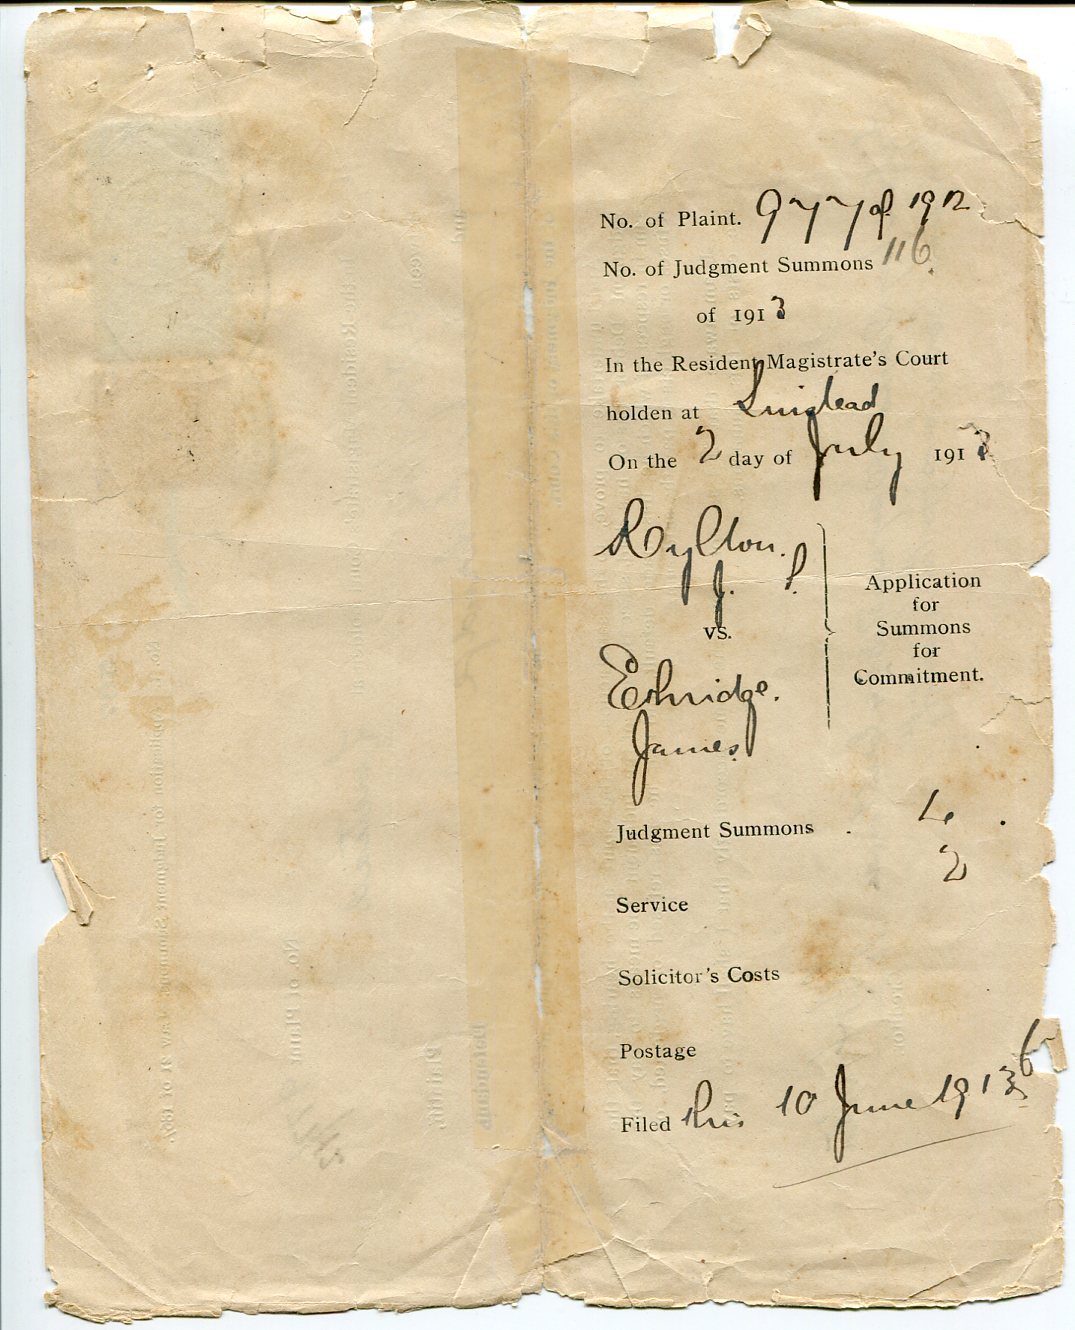 No. of Plaint. 977 of 1912
No. of Judgment Summons 116
of 1913
In the Resident Magistrate's Court
holden at Linstead
On the 2 day of July 1913
Rylton.
J. P.
vs.
Ethridge.
James
Application
for
Summons
for
Commitment.
Judgment Summons . 4 .
2
Service
Solicitor's Costs
Postage
6
Filed this 10 June 1913